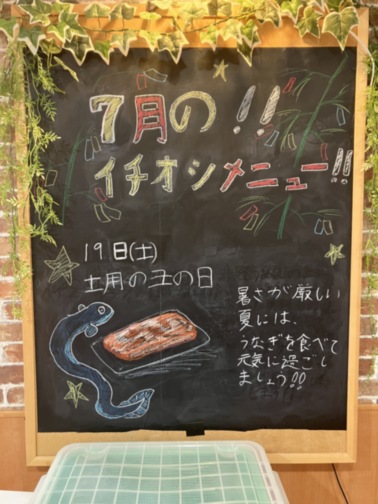 7月の!!
イチオシメニュー!!
19日(土)
土用の丑の日
暑さが厳しい
夏には、
うなぎを食べて
元気に過ごし
ましょう!!